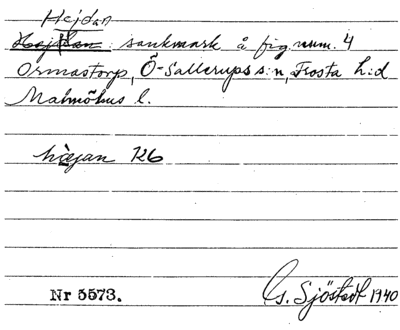 Hejdan
Hejdan: sankmark å fig.num. 4
Ormastorp, Ö-Sallerups s:n, Frosta h:d
Malmöhus l.
hèjan 126
Nr 5573.
G. Sjöstedt 1940